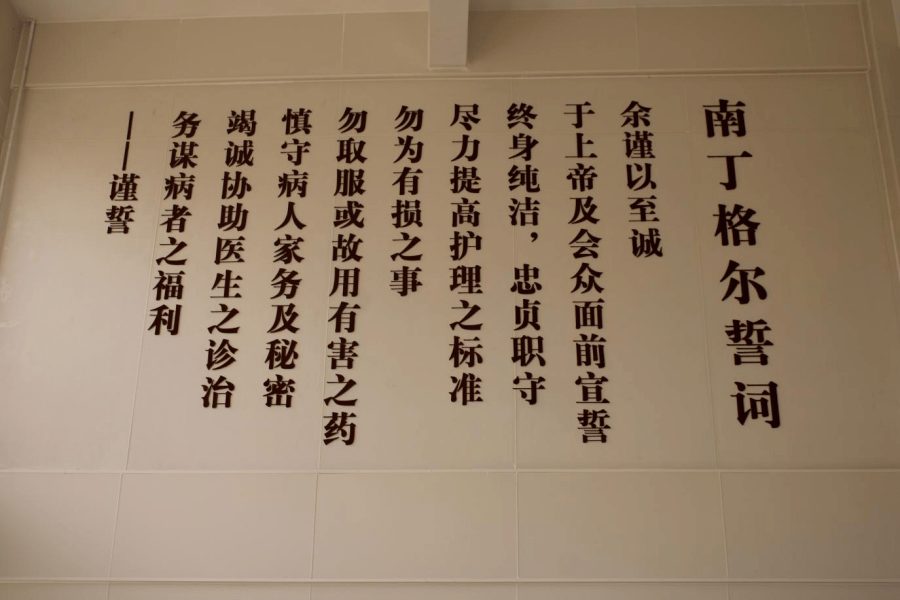 南丁格尔誓词
余谨以至诚
于上帝及会众面前宣誓
终身纯洁，忠贞职守
尽力提高护理之标准
勿为有损之事
勿取服或故用有害之药
慎守病人家务及秘密
竭诚协助医生之诊治
务谋病者之福利
——谨誓